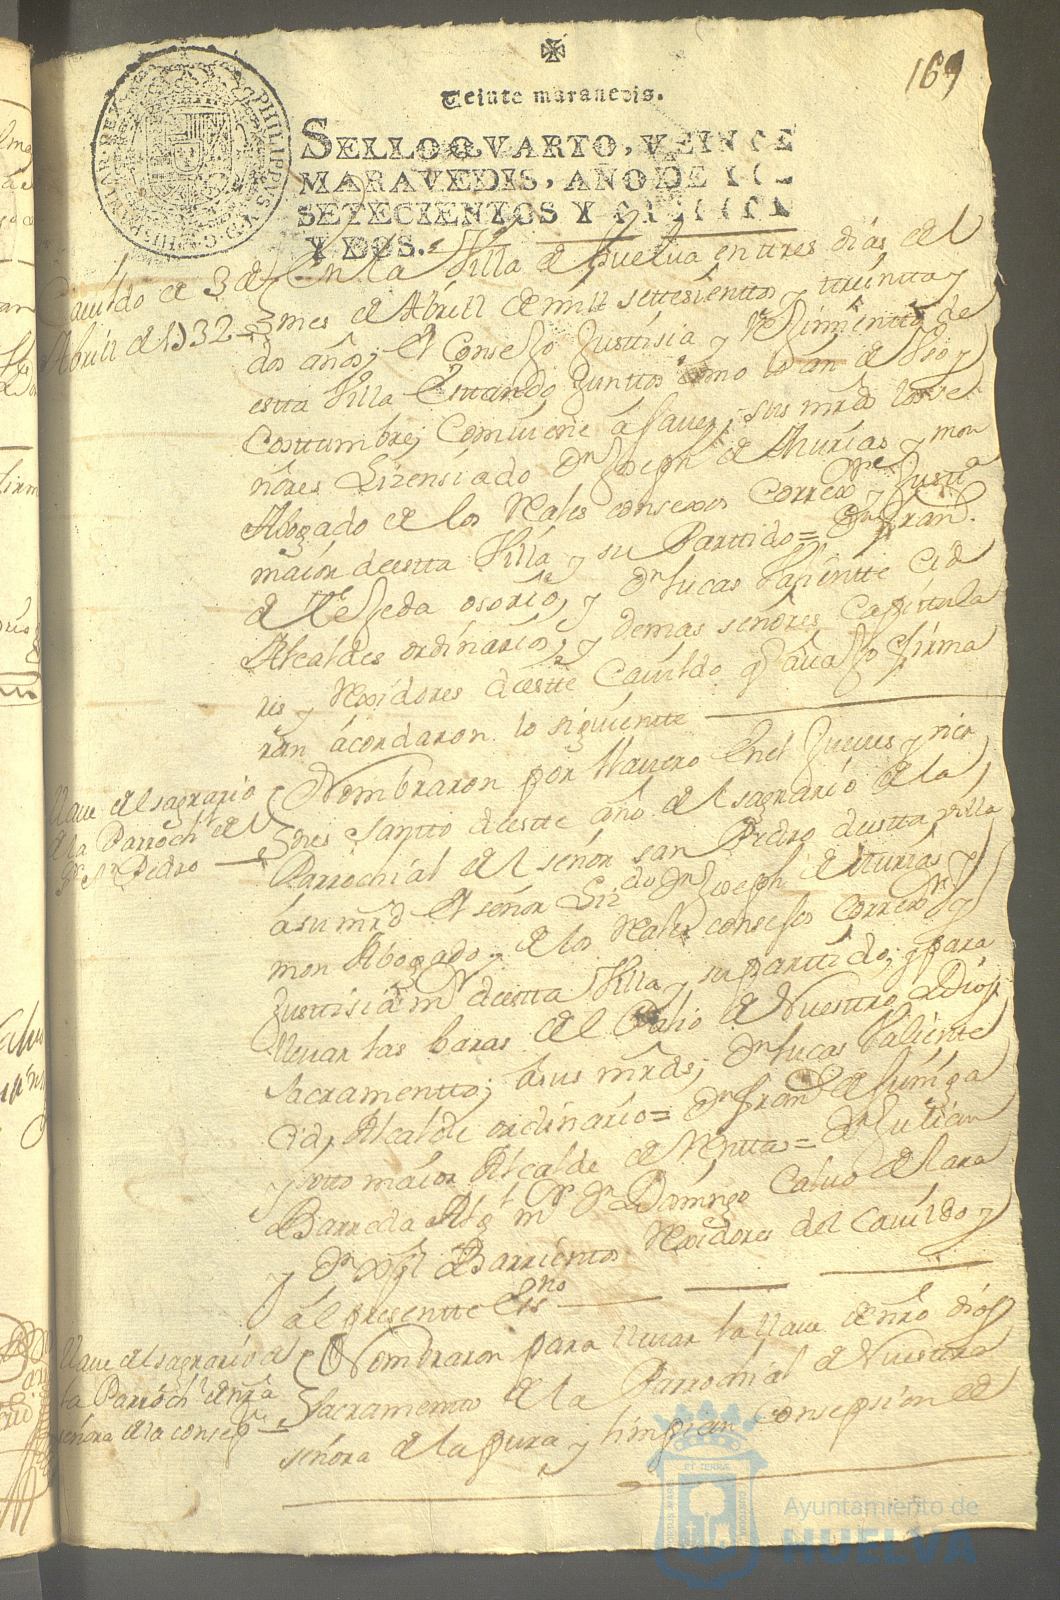 169
Veinte maravedis.
SELLO QVARTO, VEINTE
MARAVEDIS, AÑO DE
SETECIENTOS Y
Y DOS.
Cavildo de 3 de
Abrill de 1732
En la Villa de Huelva en tres dias del
mes de Abrill de mill settesienttos y treintta y
dos años; el Consejo Justtisia y Rejimientto de
estta Villa Estando Junttos como lo an de Uso y
Costtumbre, Combiene a saver, sus mrds los se
ñores Lizensiado Dn Joseph de Asturias y mon
Abogado de los Reales consexos Correxor y Justta
maior de estta Villa y su Parttido = Dn Franco
de Texeda osorio, y Dn Lucas Valientte Cid
Alcaldes ordinarios, y demas señores Capittula
res y Rexidores de estte Cavildo q avajo firma
ran acordaron lo siguientte
Llave del sagrario
de la Parrochl del
Sr Sn Pedro
Nombraron por llavero En el Jueves y vier
nes santto de estte año del sagrario de la
Parrochial del señor san Pedro de estta villa
a su mrd el señor Lizdo Dn Joseph de Asturias y
mon Abogado de los Reales consejos Correxor y
Justtisia mr de estta Villa y su parttido; y para
llevar las baras del Palio de Nuestro Dios
Sacramentto; a sus mrds; Dn Lucas Valiente
Cid, Alcalde ordinario = Dn Franco de suniga
y otto maior Alcalde de Rentta = Dn Julian
Barreda Algl mr Dn Domingo Calvo de Lara
y Dn Barrientos Rexidores del Cavildo y
al presentte Esno
Llave del sagrario de
la Parrochl de nra
señora de la consepn
Nombraron para llevar la llave de nro Dios
Sacramentto de la Parrochial de Nuestra
señora de la pura y limpia Consepsion de
Ayuntamiento de
HUELVA